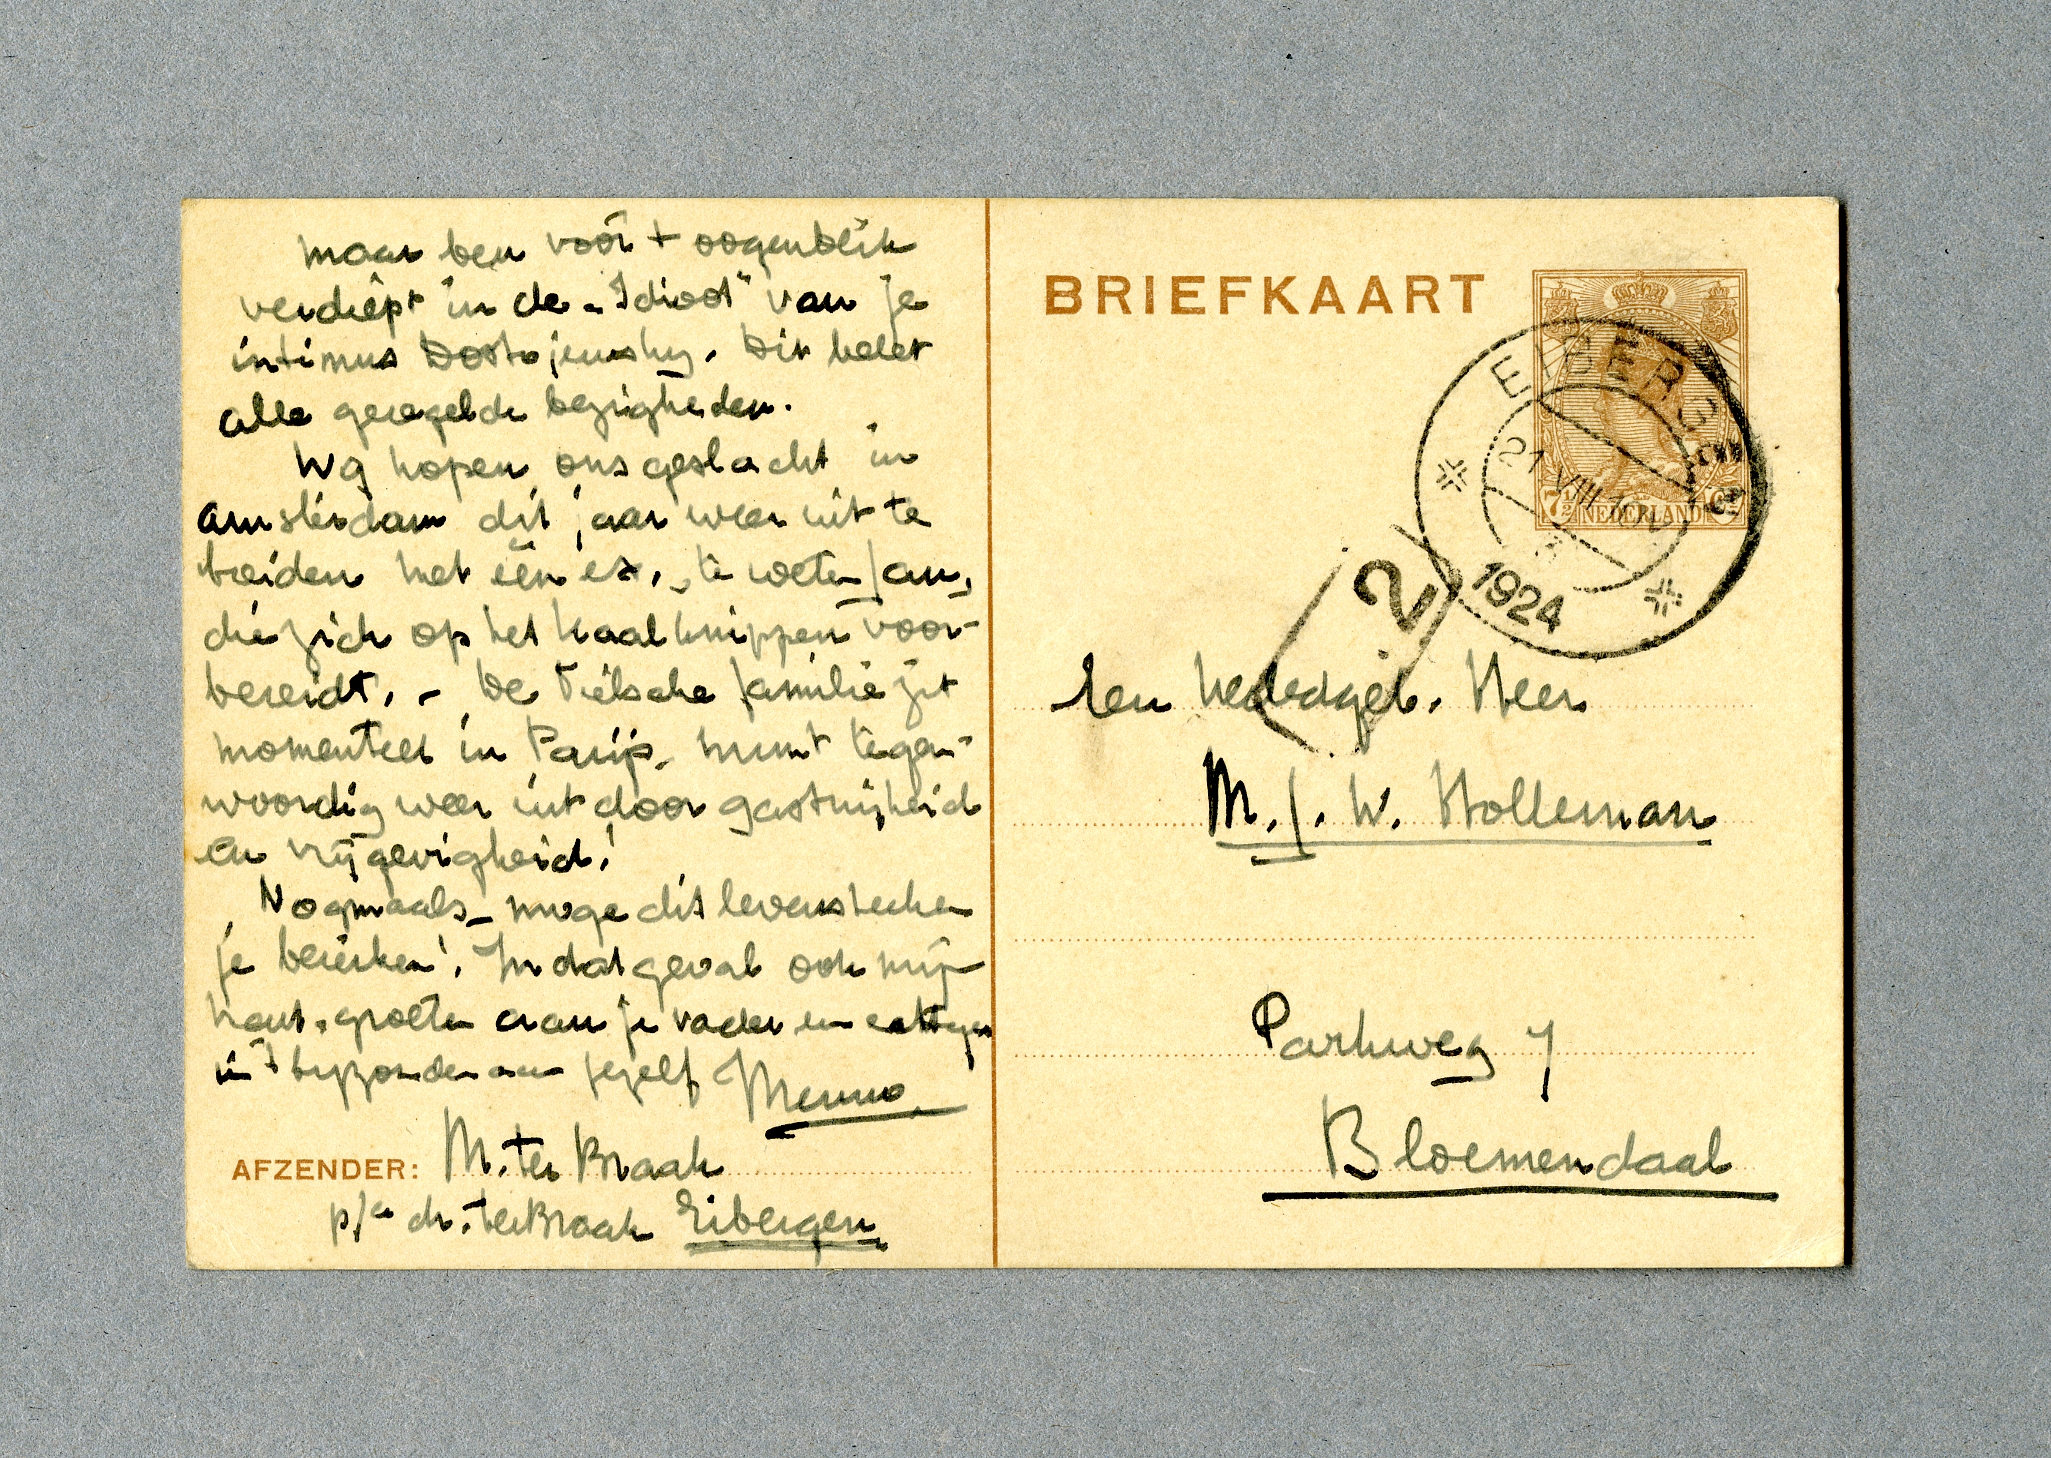 maar ben voor 't oogenblik
verdiept in de „Idioot" van je
intimus Dostojewsky. Dit belet
alle geregelde bezigheden.
Wij hopen ons geslacht in
Amsterdam dit jaar weer uit te
breiden met één ex., te weten Jan,
die zich op het kaalknippen voor-
bereidt. – De Tielsche familie zit
momenteel in Parijs, munt tegen-
woordig weer uit door gastvrijheid
en vrijgevigheid!
Nogmaals – moge dit levensteeken
je bereiken! In dat geval ook mijn
hart. groeten aan je vader en
in 't bijzonder aan jezelf Menno.
AFZENDER: M. ter Braak
p/a dr. ter Braak Eibergen
BRIEFKAART
EIBERGEN
21 VIII
1924
7½ NEDERLAND
2
Den Weledelgeb. Heer
M. J. W. Holleman
Parkweg 7
Bloemendaal